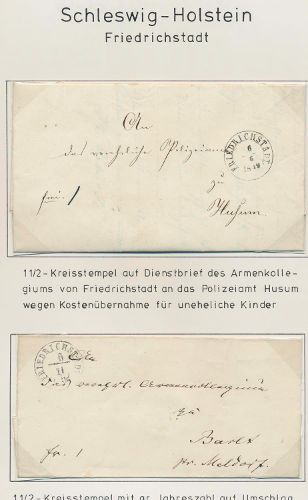 Schleswig-Holstein
Friedrichstadt
An
das
Polizeiamt
zu
frei.
Husum.
FRIEDRICHSTADT
6
6
1849
11/2-Kreisstempel auf Dienstbrief des Armenkolle-
giums von Friedrichstadt an das Polizeiamt Husum
wegen Kostenübernahme für uneheliche Kinder
FRIEDRICHSTADT
6
11
An
Das Armencollegium
zu
Barlt
fr. 1
pr. Meldorf.
11/2-Kreisstempel mit gr. Jahreszahl auf Umschlag